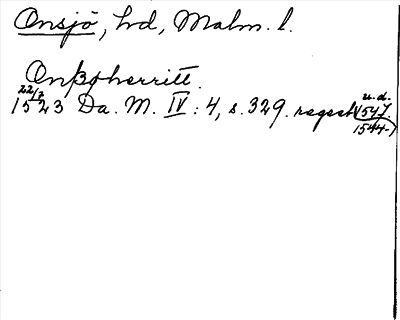 Onsjö, hd, Malm. l.
Onßøherritt.
22/2
1523 Da. M. IV: 4, s. 329. regest u.d.
1547.
1544-)